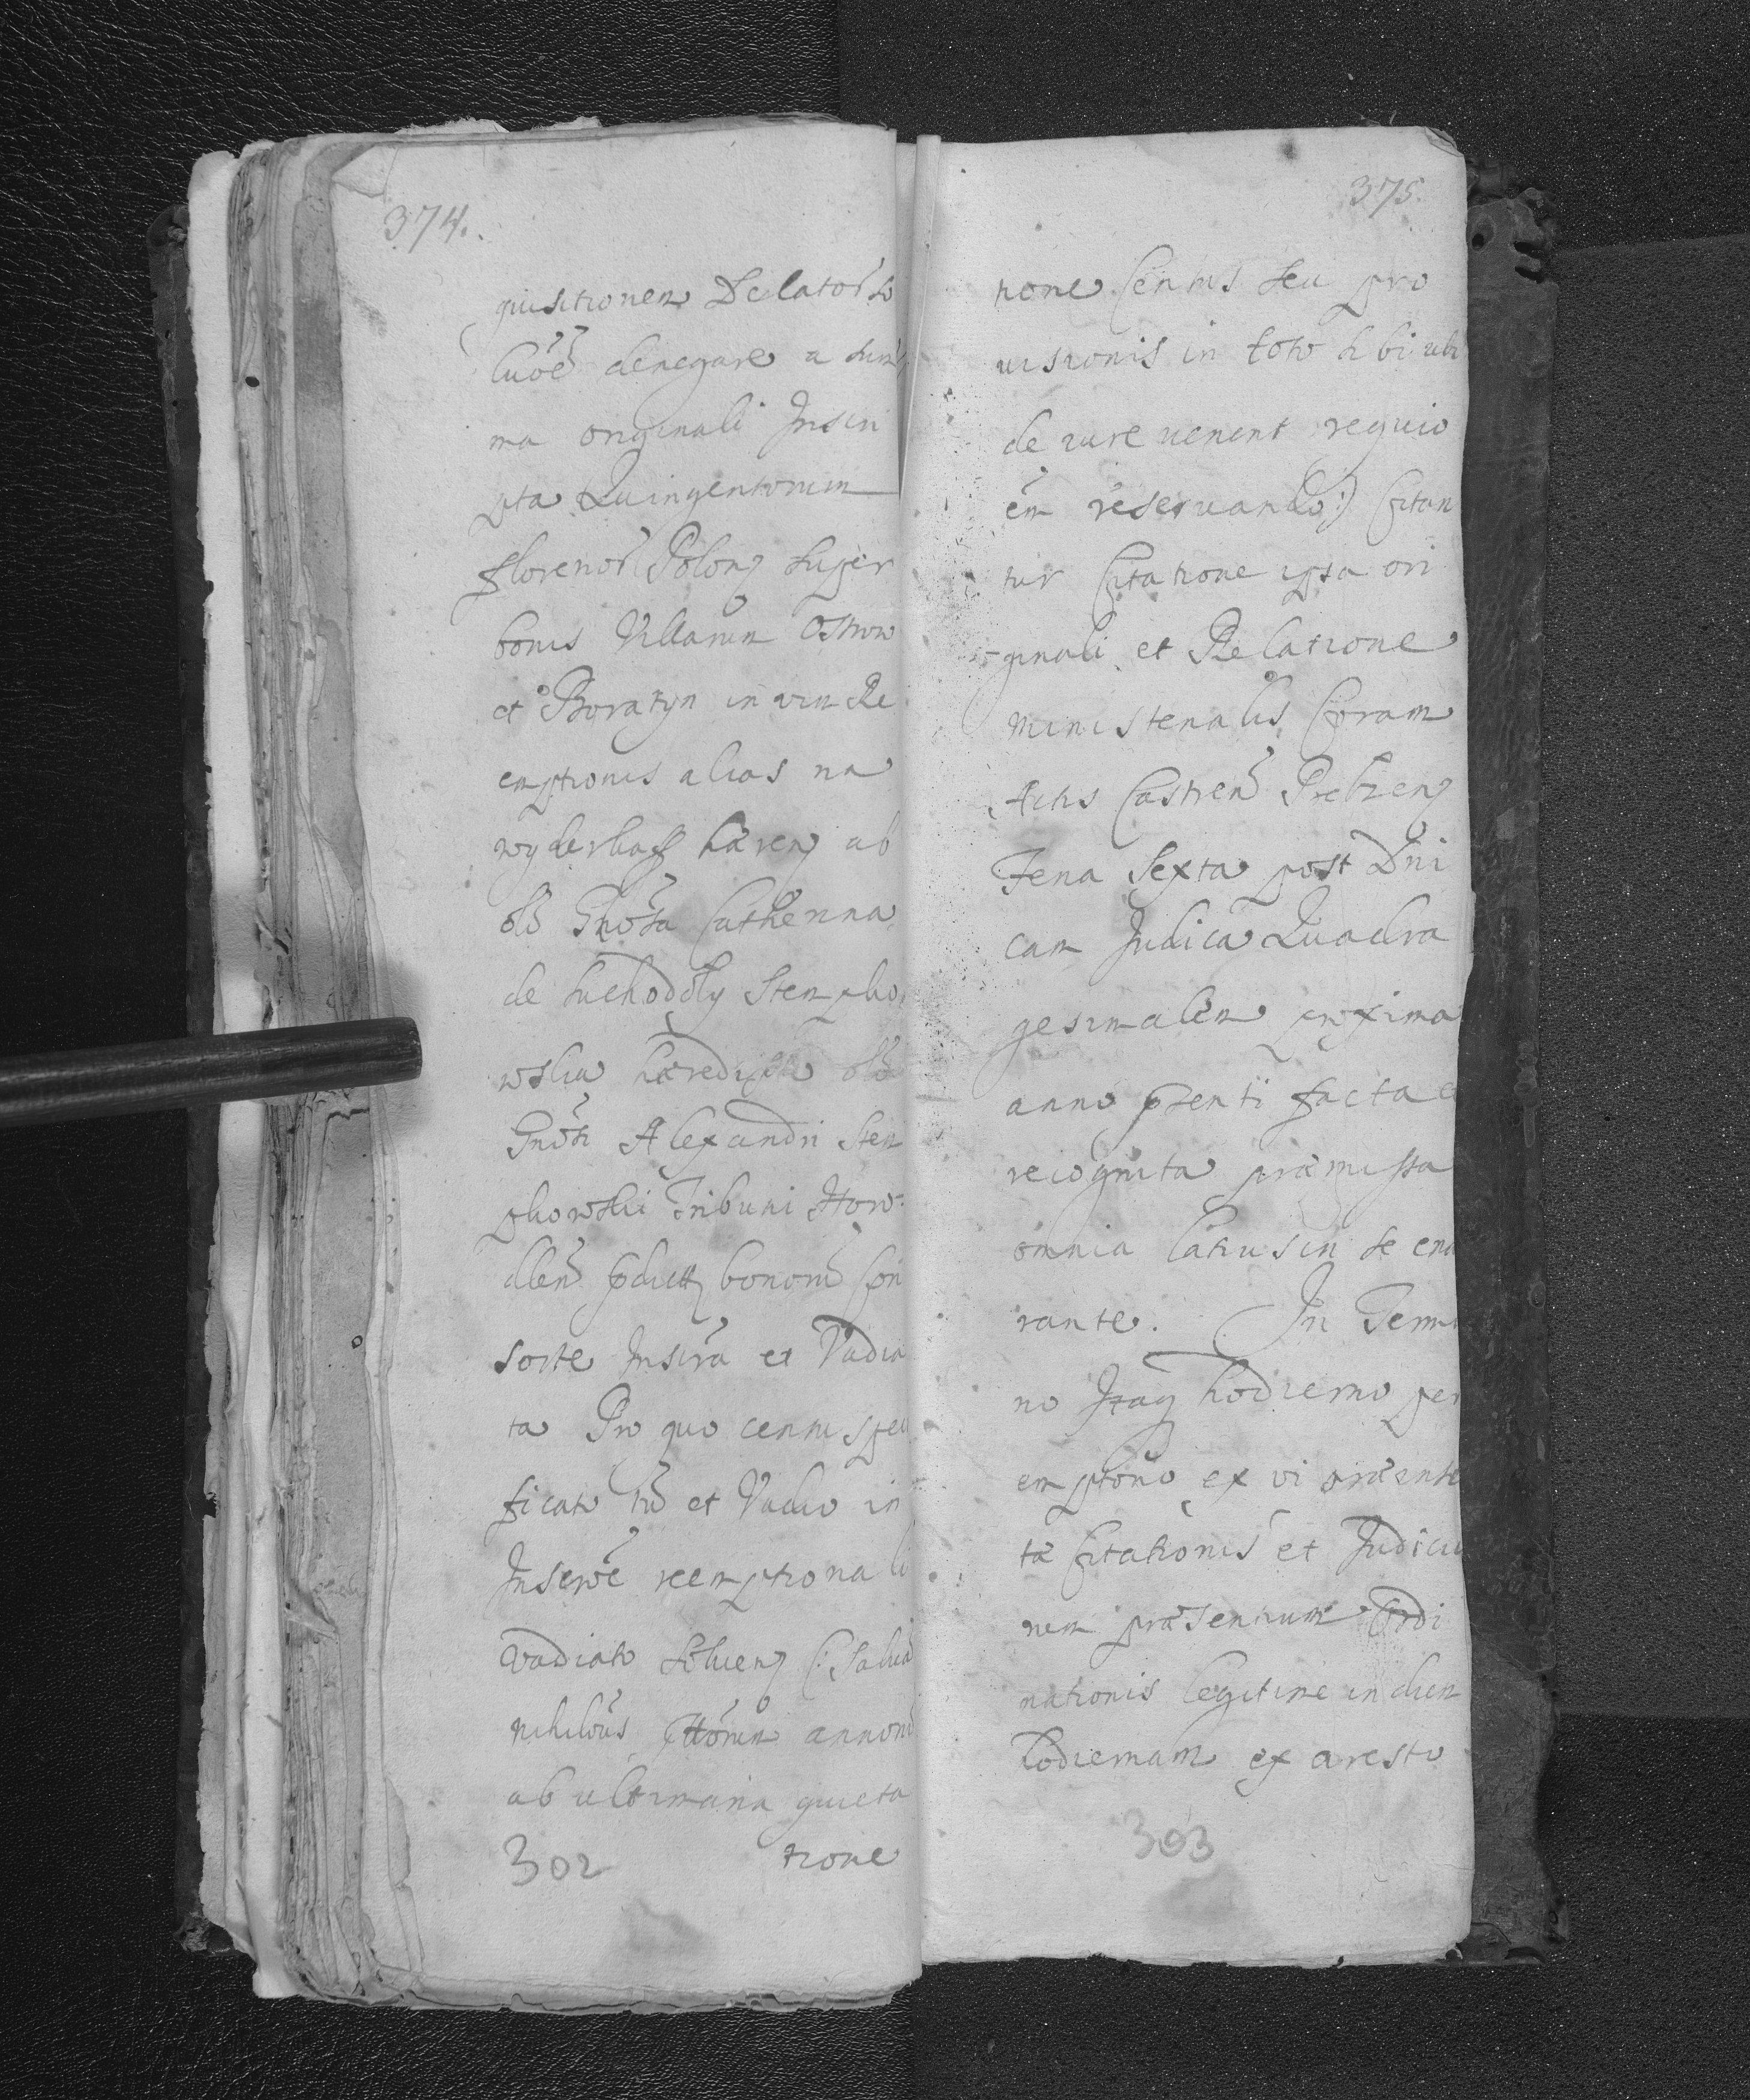 374.
quisitionem Delator so
luõe denegare a sum
ma originali Inscri
pta Quingentorum
florenor Polon super
bonis Villarum Ostrow
et Boratyn in vim Re
emptionis alias na
wyderkaff hæren ab
olõ Gnõsa Catherina
de Suchodoly Stempko
wska hæredissa olõ
Gnõsi Alexandri Stem
pkowski Tribuni How
dlen pdictt bonorũ con
sorte Inscrã et Vadia
ta Pro quo censu speci
ficato tũ et Vadio in
Inscrõe reemptionali
vadiato solven (: salva
nihilõus annorũ
ab ultimaria quieta
302 tione
375.
tione census seu pro
visionis in toto sibi ubi
de iure venerit requio
em reservando :) Citan
tur Citatione ipsa ori
ginali et Relatione
Ministerialis Coram
Actis Castren Trebien
Feria Sexta post Dni
cam Judica Quadra
gesimalem proxima
anno psenti facta et
recognita præmissa
omnia latius in se ena
rante. In Termi
no Itaq hodierno per
emptorio ex vi præinser
tæ Citationis et Judicio
rum præsentium Ordi
nationis legitime in diem
hodiernam ex aresto
303